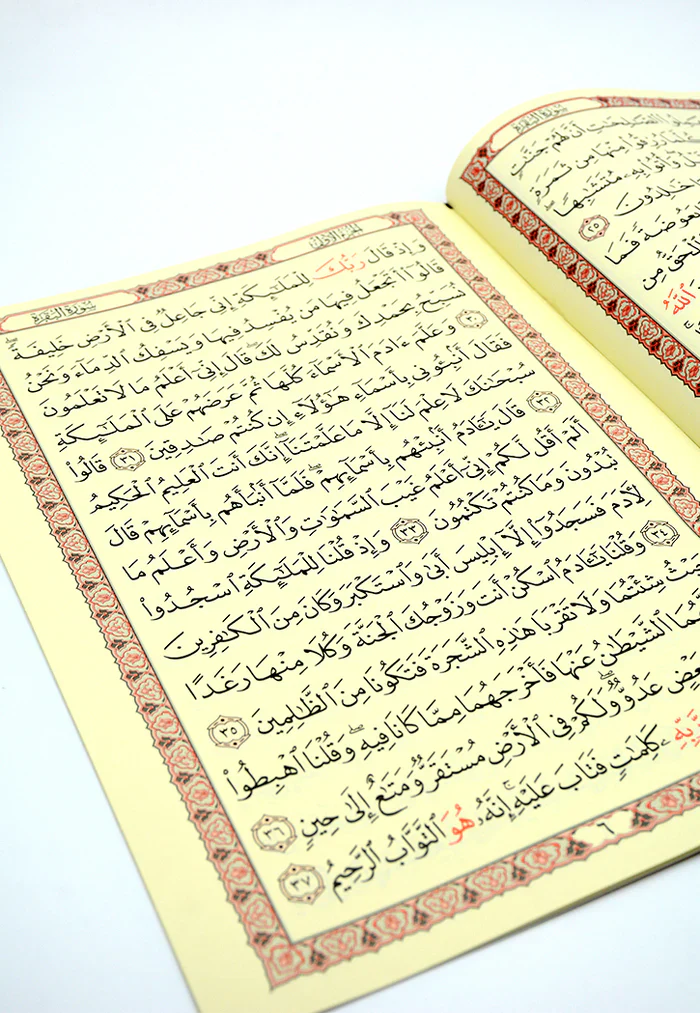 سُورَةُ البَقَرَةِ
أَنَّ لَهُمْ جَنَّٰتٖ
رُزِقُوا۟ مِنْهَا مِن ثَمَرَةٖ
وَأُتُوا۟ بِهِۦ مُتَشَٰبِهٗاۖ
خَٰلِدُونَ ٢٥
فَمَا
ٱلْحَقُّ مِن
ٱللَّهُ
الجزء الأول
سُورَةُ البَقَرَةِ
وَإِذْ قَالَ رَبُّكَ لِلْمَلَٰٓئِكَةِ إِنِّى جَاعِلٞ فِى ٱلْأَرْضِ خَلِيفَةٗۖ
قَالُوٓا۟ أَتَجْعَلُ فِيهَا مَن يُفْسِدُ فِيهَا وَيَسْفِكُ ٱلدِّمَآءَ وَنَحْنُ
نُسَبِّحُ بِحَمْدِكَ وَنُقَدِّسُ لَكَۖ قَالَ إِنِّىٓ أَعْلَمُ مَا لَا تَعْلَمُونَ
٣٠ وَعَلَّمَ ءَادَمَ ٱلْأَسْمَآءَ كُلَّهَا ثُمَّ عَرَضَهُمْ عَلَى ٱلْمَلَٰٓئِكَةِ
فَقَالَ أَنۢبِـُٔونِى بِأَسْمَآءِ هَٰٓؤُلَآءِ إِن كُنتُمْ صَٰدِقِينَ ٣١ قَالُوا۟
سُبْحَٰنَكَ لَا عِلْمَ لَنَآ إِلَّا مَا عَلَّمْتَنَآۖ إِنَّكَ أَنتَ ٱلْعَلِيمُ ٱلْحَكِيمُ
٣٢ قَالَ يَٰٓـَٔادَمُ أَنۢبِئْهُم بِأَسْمَآئِهِمْۖ فَلَمَّآ أَنۢبَأَهُم بِأَسْمَآئِهِمْ قَالَ
أَلَمْ أَقُل لَّكُمْ إِنِّىٓ أَعْلَمُ غَيْبَ ٱلسَّمَٰوَٰتِ وَٱلْأَرْضِ وَأَعْلَمُ مَا
تُبْدُونَ وَمَا كُنتُمْ تَكْتُمُونَ ٣٣ وَإِذْ قُلْنَا لِلْمَلَٰٓئِكَةِ ٱسْجُدُوا۟
لِـَٔادَمَ فَسَجَدُوٓا۟ إِلَّآ إِبْلِيسَ أَبَىٰ وَٱسْتَكْبَرَ وَكَانَ مِنَ ٱلْكَٰفِرِينَ
٣٤ وَقُلْنَا يَٰٓـَٔادَمُ ٱسْكُنْ أَنتَ وَزَوْجُكَ ٱلْجَنَّةَ وَكُلَا مِنْهَا رَغَدًا
شِئْتُمَا وَلَا تَقْرَبَا هَٰذِهِ ٱلشَّجَرَةَ فَتَكُونَا مِنَ ٱلظَّٰلِمِينَ ٣٥
ٱلشَّيْطَٰنُ عَنْهَا فَأَخْرَجَهُمَا مِمَّا كَانَا فِيهِۖ وَقُلْنَا ٱهْبِطُوا۟
عَدُوّٞۖ وَلَكُمْ فِى ٱلْأَرْضِ مُسْتَقَرّٞ وَمَتَٰعٌ إِلَىٰ حِينٖ ٣٦
كَلِمَٰتٖ فَتَابَ عَلَيْهِۚ إِنَّهُۥ هُوَ ٱلتَّوَّابُ ٱلرَّحِيمُ ٣٧
٦